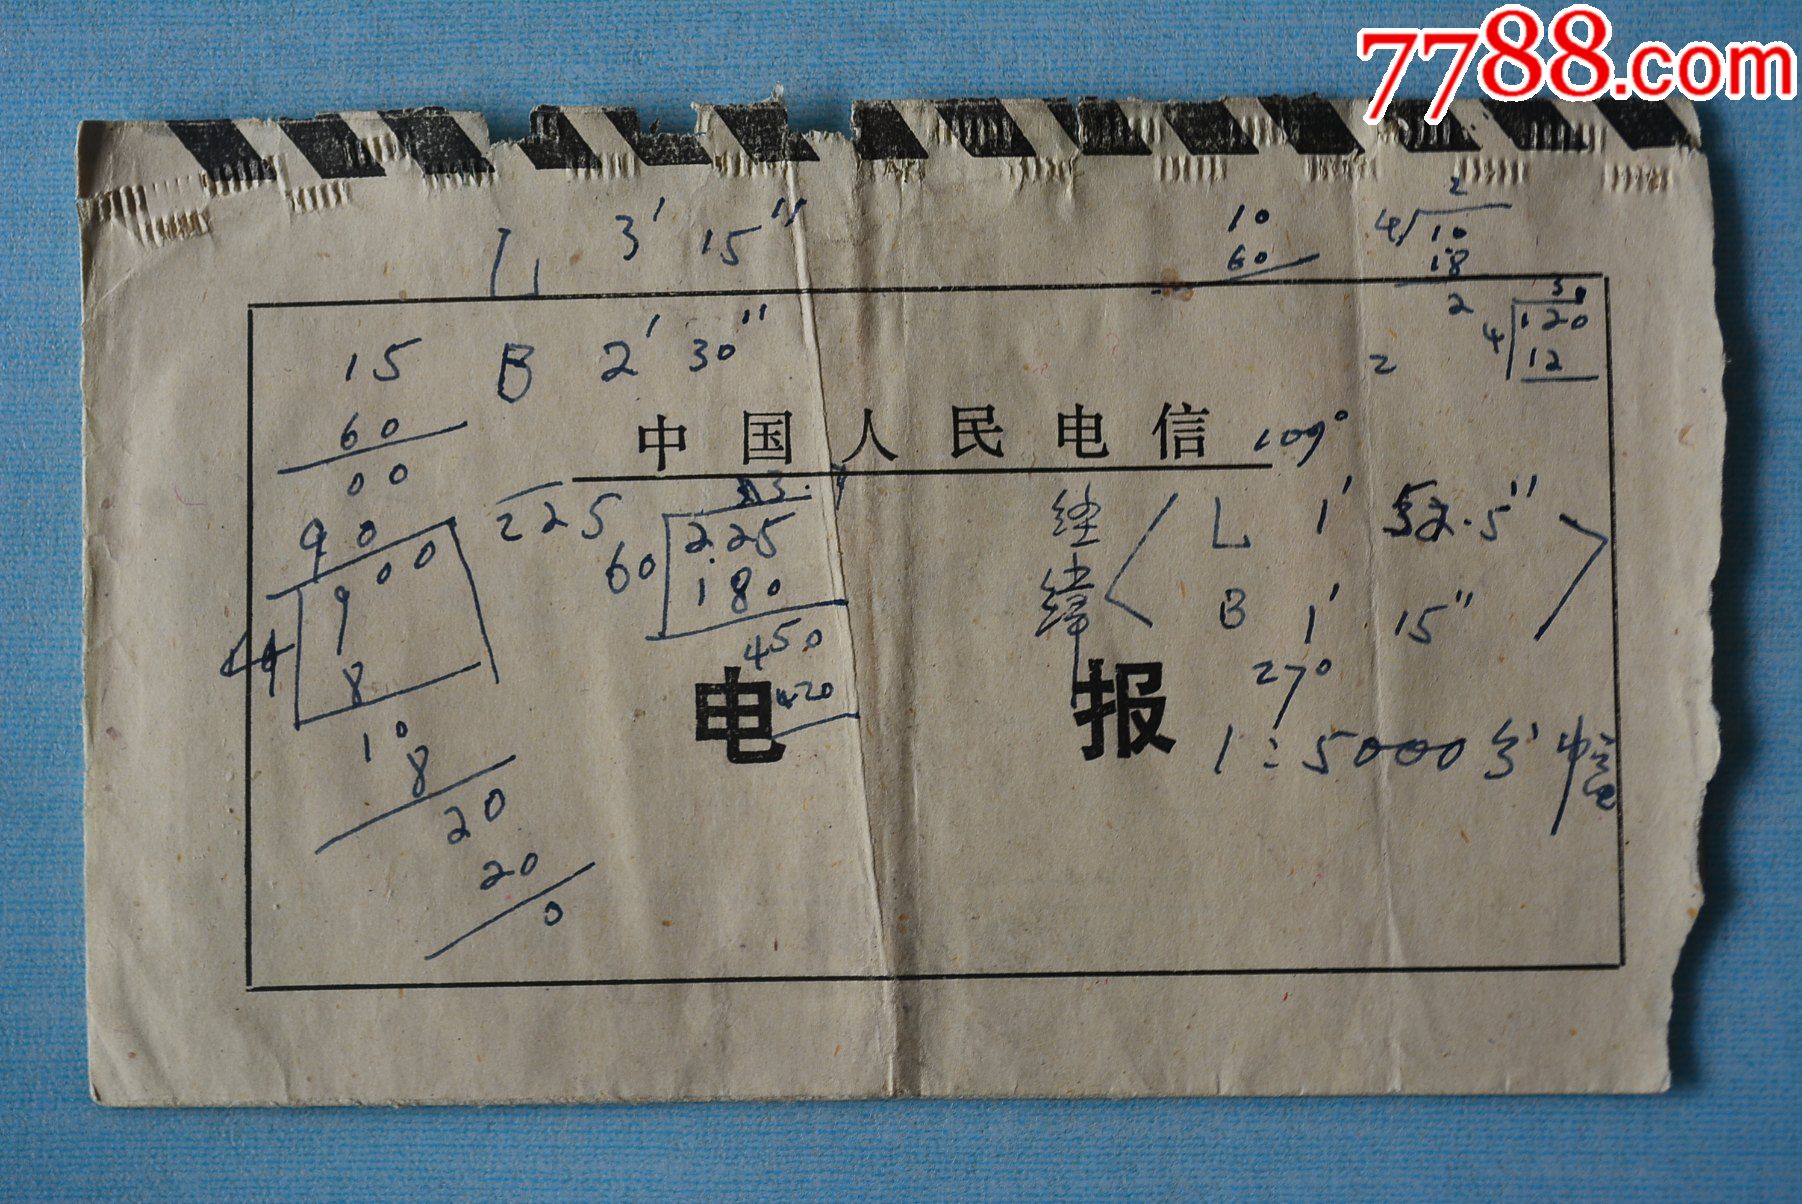 7788.com
L 3′ 15″
10
60
2
4 10
18
2
15
60
00
90
900
B 2′ 30″
2
3
4 120
12
中国人民电信
109°
225
60 225
180
450
420
经 L 1′ 52.5″
纬 B 1′ 15″
27°
9
8
10
8
20
20
0
电报
1:5000